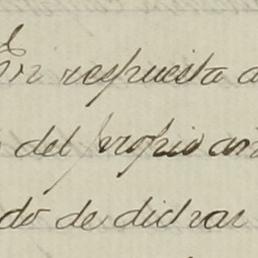 En respuesta a
del propio an
do de dichas